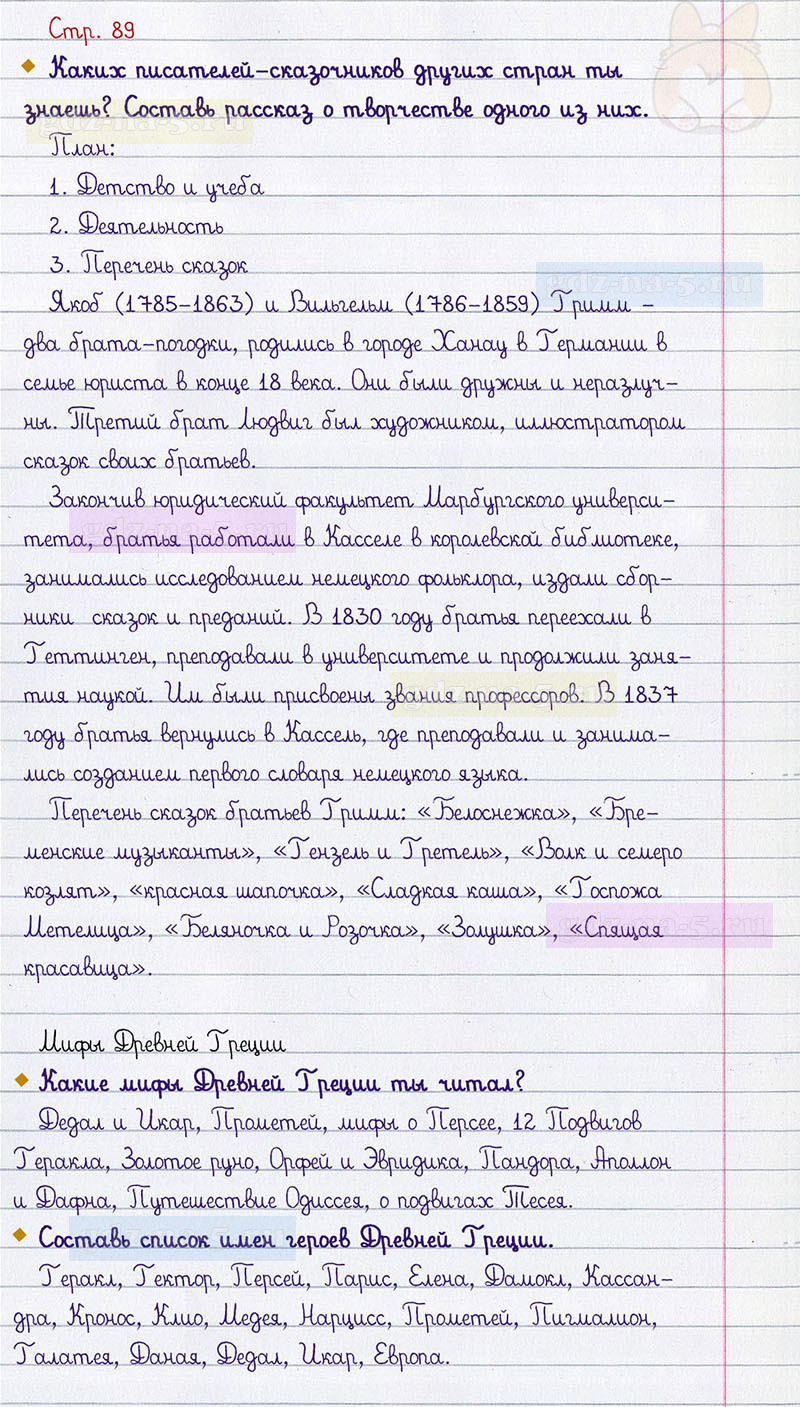 Стр. 89
Каких писателей-сказочников других стран ты
знаешь? Составь рассказ о творчестве одного из них.
gdz-na-5.ru
План:
1. Детство и учеба
2. Деятельность
3. Перечень сказок
gdz-na-5.ru
Якоб (1785-1863) и Вильгельм (1786-1859) Гримм -
два брата-погодки, родились в городе Ханау в Германии в
семье юриста в конце 18 века. Они были дружны и неразлуч-
ны. Третий брат Людвиг был художником, иллюстратором
сказок своих братьев.
Закончив юридический факультет Марбургского универси-
gdz-na-5.ru
тета, братья работали в Касселе в королевской библиотеке,
занимались исследованием немецкого фольклора, издали сбор-
ники сказок и преданий. В 1830 году братья переехали в
Геттинген, преподавали в университете и продолжили заня-
тия наукой. Им были присвоены звания профессоров. В 1837
gdz-na-5.ru
году братья вернулись в Кассель, где преподавали и занима-
лись созданием первого словаря немецкого языка.
Перечень сказок братьев Гримм: «Белоснежка», «Бре-
менские музыканты», «Гензель и Гретель», «Волк и семеро
козлят», «красная шапочка», «Сладкая каша», «Госпожа
Метелица», «Беляночка и Розочка», «Золушка», «Спящая
gdz-na-5.ru
красавица».
Мифы Древней Греции
Какие мифы Древней Греции ты читал?
Дедал и Икар, Прометей, мифы о Персее, 12 Подвигов
Геракла, Золотое руно, Орфей и Эвридика, Пандора, Аполлон
и Дафна, Путешествие Одиссея, о подвигах Тесея.
Составь список имен героев Древней Греции.
gdz-na-5.ru
Геракл, Гектор, Персей, Парис, Елена, Дамокл, Кассан-
дра, Кронос, Клио, Медея, Нарцисс, Прометей, Пигмалион,
Галатея, Даная, Дедал, Икар, Европа.